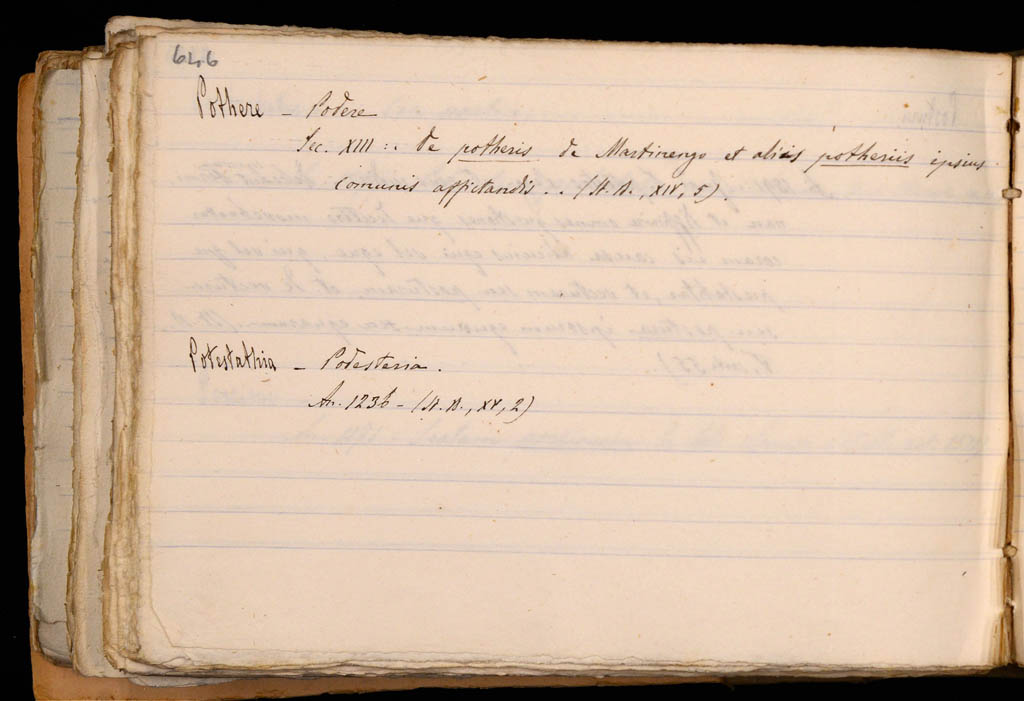 646
Pothere - Podere
Sec. XIII: de potheris de Martinengo et aliis potheriis ipsius
comunis affictandis . . (St. B., XIV, 5).
Potestathia - Podesteria.
An. 1236 - (St. B., XV, 2)